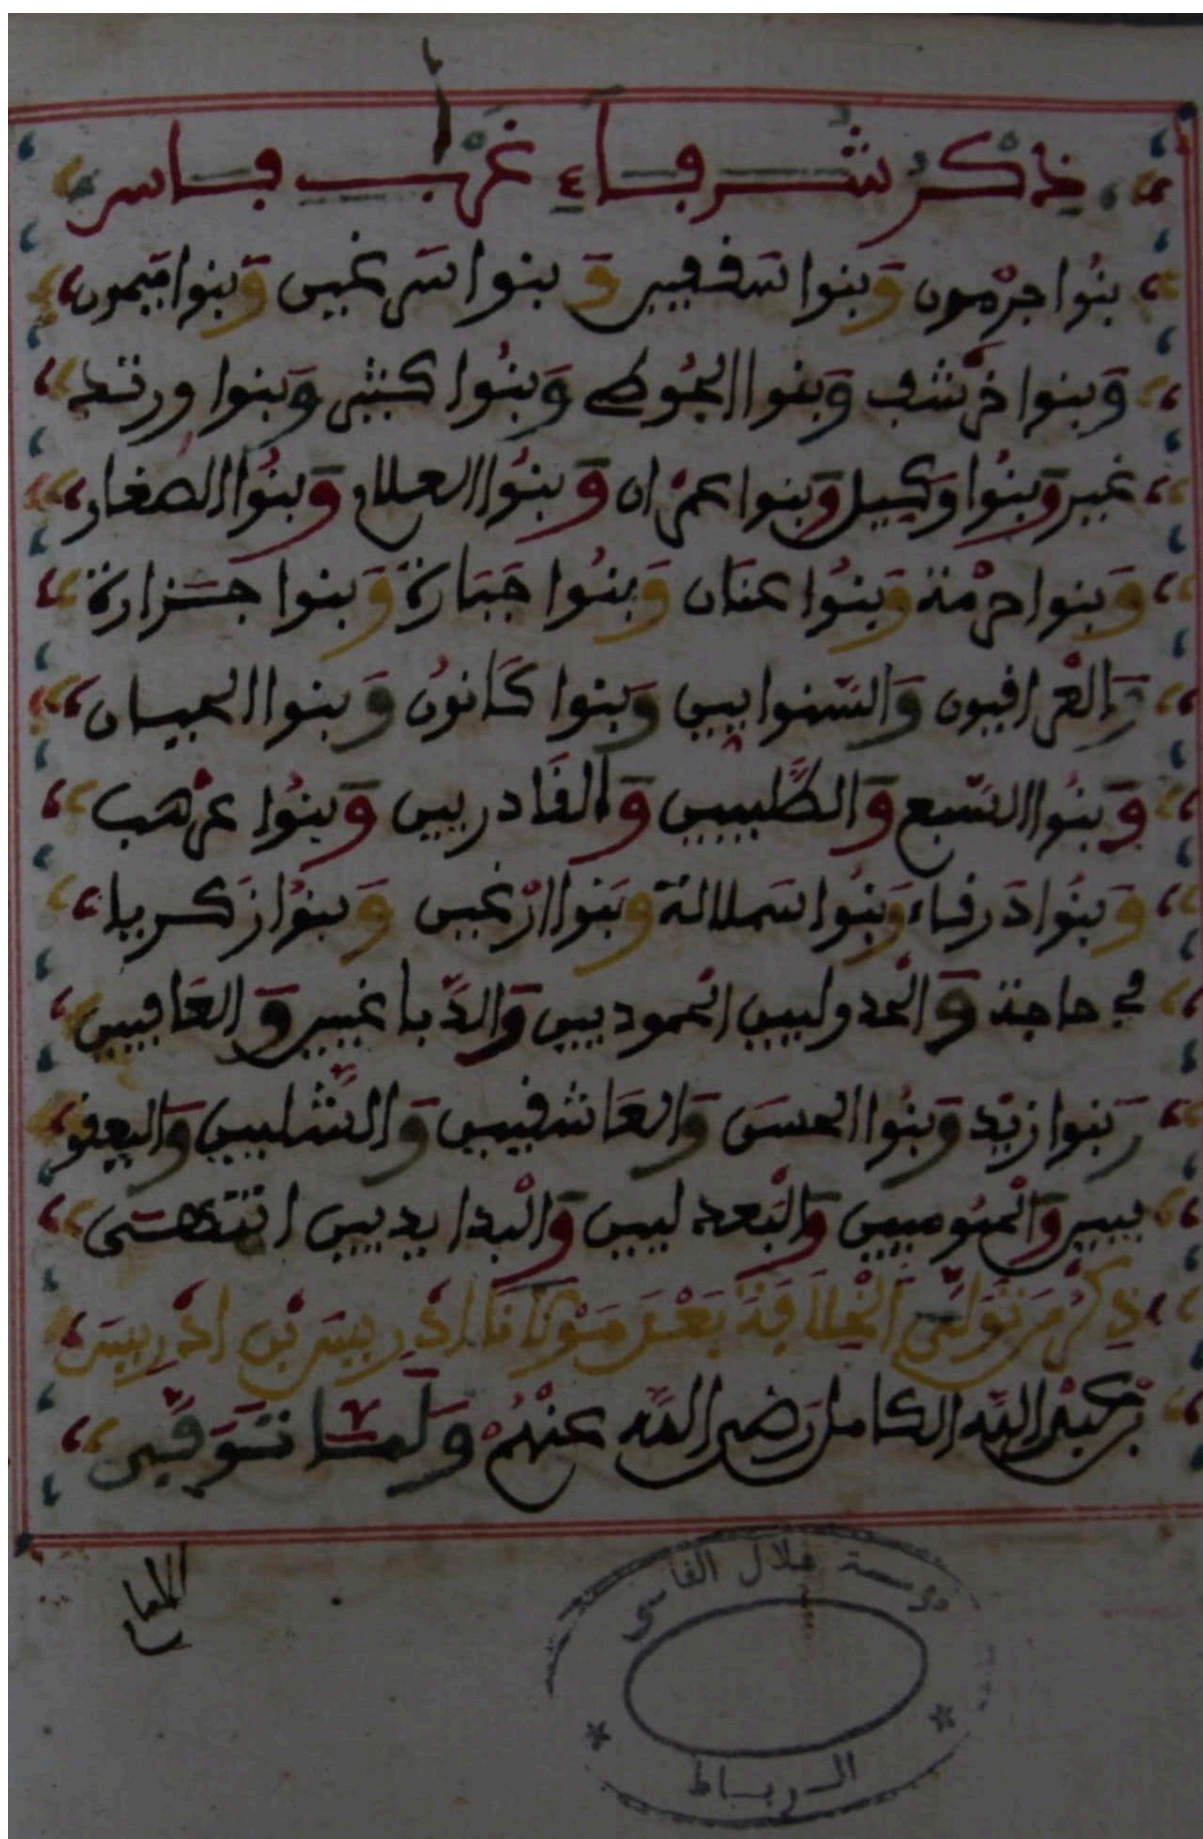 ذِكْرُ شُرَفَاءِ غَرْب فاس
بنُوا جرْمون وَبنوا سَففيير وَ بنوا سَرغيين وَبنوا ميمون
وَبنوا خرشف وَبنوا الجُوطي وَبنُوا كنثي وَبنوا ورتد
غير وَبنُوا وَكيل وَبنوا عمْران وَبنُوا العلاج وَبنُوا الصُغار
وَبنوا حرْمة وَبنُوا عنان وَبنُوا جَبَارة وَبنوا جَزارة
وَالعْرافيون وَالسّنوايين وَبنوا كَانون وَبنوا الحيان
وَبنُوا السّبع وَالطَّليبيين وَالقَادريين وَبنُوا عرْهب
وَبنُوا دَرفاء وَبنُوا سَملالة وَبنوا ارْغيين وَبنُوا زَكريا
في حاجة وَالحْدوليين الحْموديين وَالدّباغيين وَالعَافيين
وَبنوا زيْد وَبنُوا الحسَن وَالعَاشفيين وَالشّليين وَاليعفو
بيين وَالمْومنيين وَالبْعدليين وَالبْدايديين انتهــى
ذكْرُ من تَولّى الخْلَافَة بَعْدَ مَوْلَانَا ادْريس بْن ادْريسَ
بن عبْد اللّه الكامل رَضي اللّه عنْهمْ وَلَمّا تَوَفّي
الامام
مؤسسة علال الفاسي
الرباط